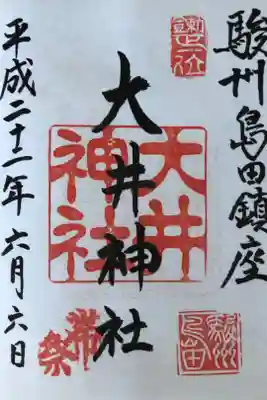 駿州島田鎮座
大井神社
平成二十二年六月六日
大井
神社
帯祭
駿州
島田